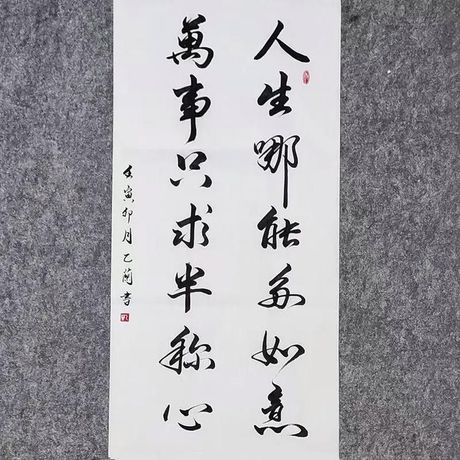 人生哪能多如意
萬事只求半称心
壬寅卯月乙蘭书